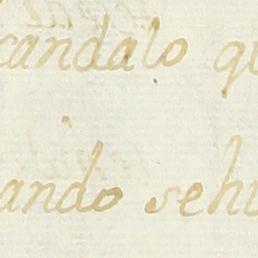 candalo q
ando sehi